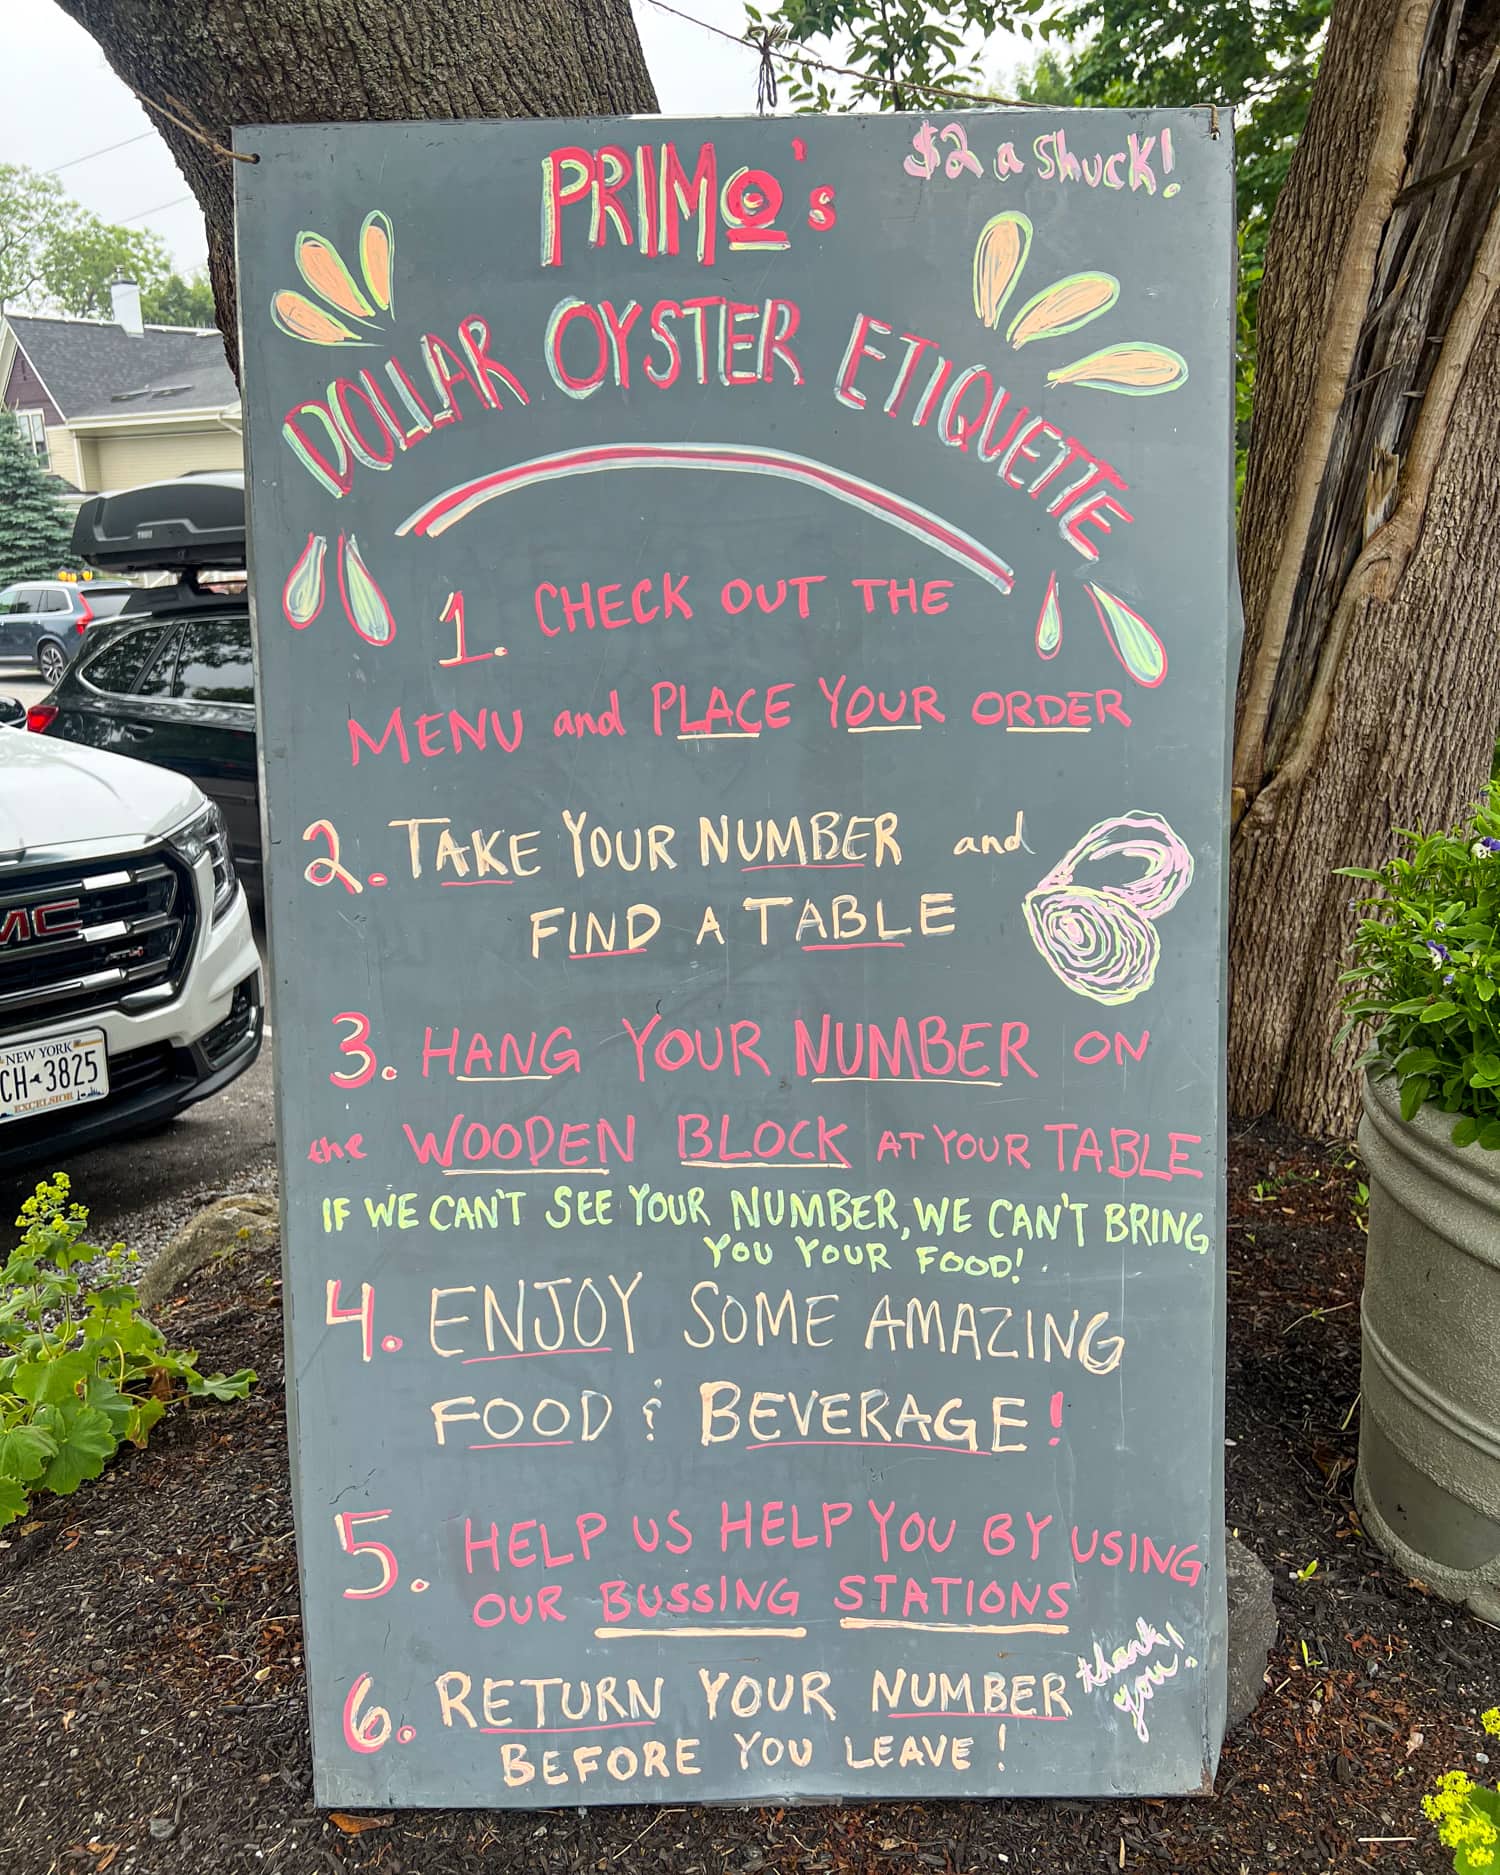 $2 a Shuck!
PRIMO's
DOLLAR OYSTER ETIQUETTE
1. CHECK OUT THE
MENU and PLACE YOUR ORDER
2. TAKE YOUR NUMBER and
FIND A TABLE
3. HANG YOUR NUMBER ON
the WOODEN BLOCK AT YOUR TABLE
IF WE CAN'T SEE YOUR NUMBER, WE CAN'T BRING
YOU YOUR FOOD!
4. ENJOY SOME AMAZING
FOOD & BEVERAGE!
5. HELP US HELP YOU BY USING
OUR BUSSING STATIONS
6. RETURN YOUR NUMBER
BEFORE YOU LEAVE!
thank
you!
THULE
MC
AT4
NEW YORK
CH 3825
EXCELSIOR